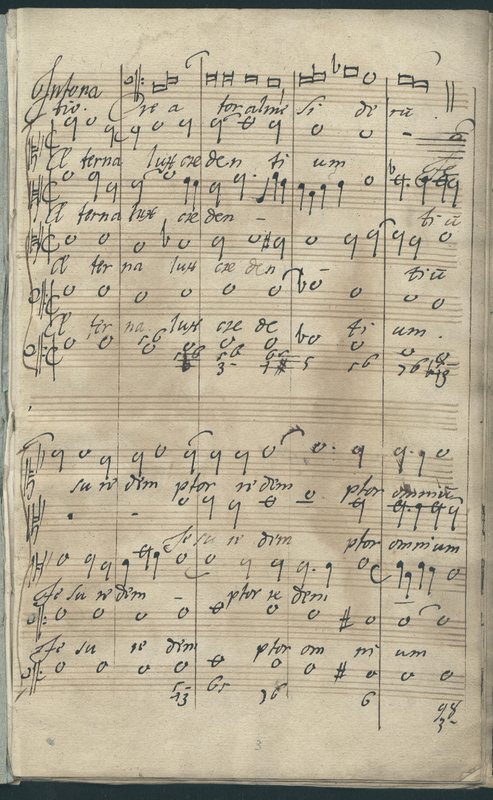 Intona
tio. Cre a tor alme si de rū.
Æ terna lux cre den ti um
Æ terna lux cre den - tiū
Æ ter na lux cre den - tiū
Æ ter na lux cre de ti um.
su re dem ptor re dem ptor omniū
Je su re dem ptor omnium
Je su re dem - ptor re dem
Je su re dem ptor om ni um
3